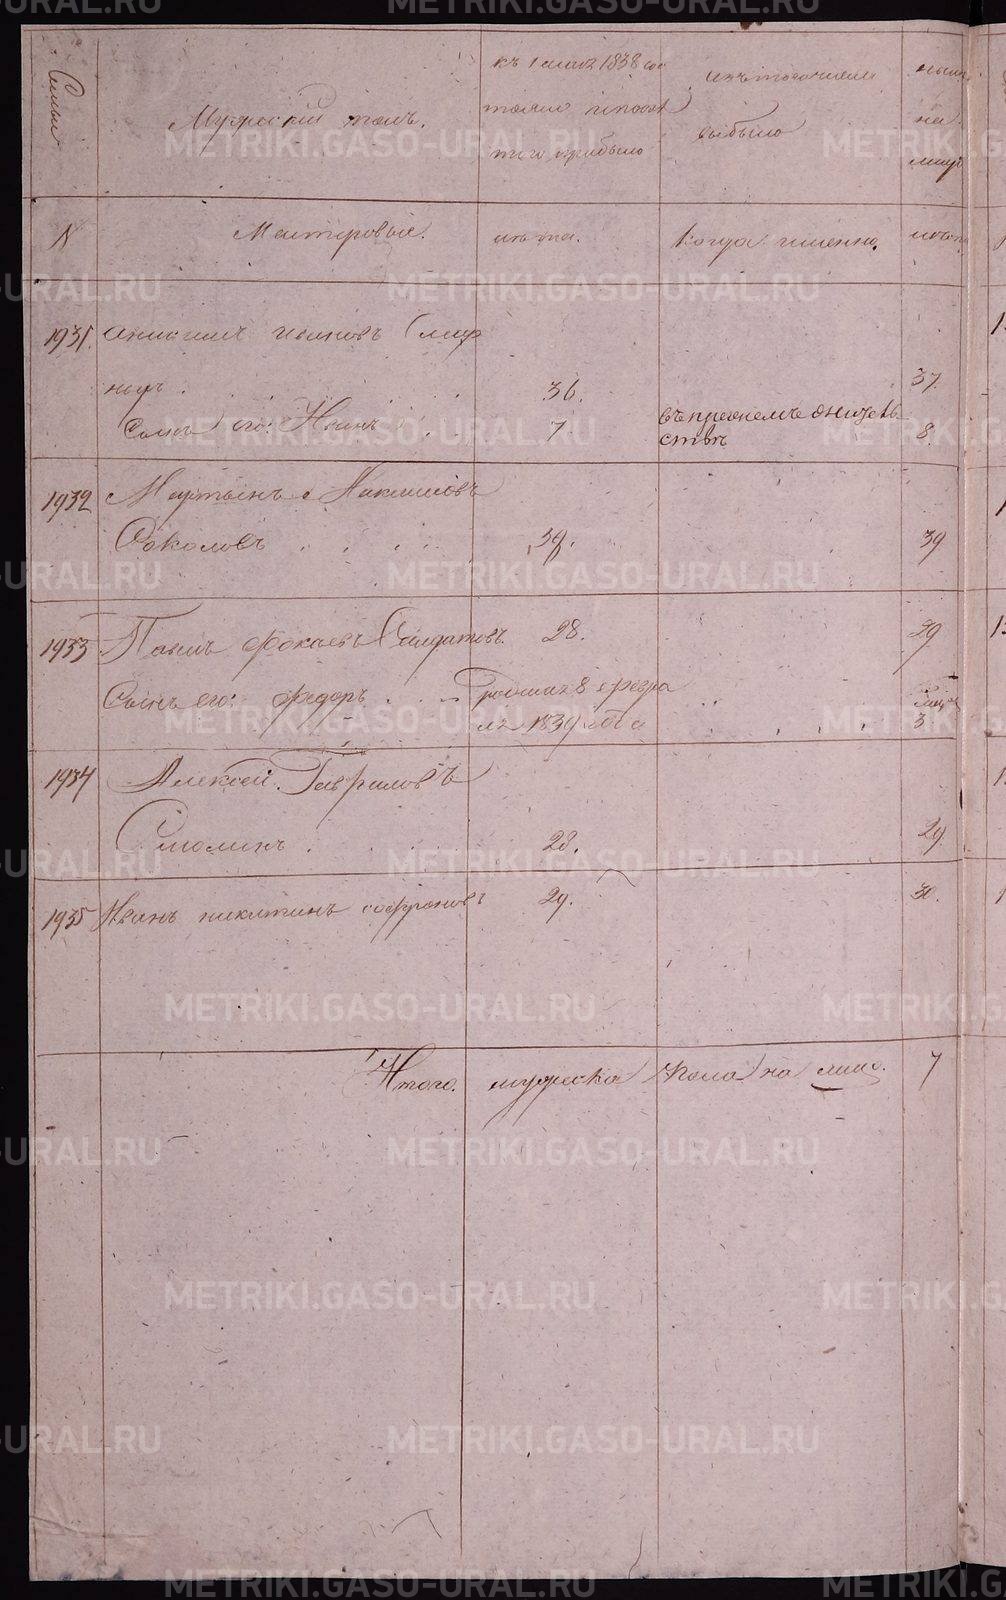 Семьи
Мужеский полъ.
къ 1 мая 1838 сос
тояло и после
того прибыло
изъ того числа
выбыло
ныне
на
лицо
N
Мастеровые.
лета.
Когда имянно.
лета
1931. Анисимъ Ивановъ Смир
новъ . 36. 37.
Сынъ его: Иванъ 7. въ прежнемъ 8.
стве
1932 Мартынъ Максимовъ
Соколовъ 39. 39
1933 Павелъ Фокаевъ Солдатовъ. 28. 29
Сынъ его: Федоръ родился 8 февра
ля 1839 года 3
1934 Алексей Гавриловъ
Смолинъ 28. 29.
1935 Иванъ Никитинъ Софроновъ 29. 30.
Итого. мужеска пола на лицо. 7
METRIKI.GASO-URAL.RU